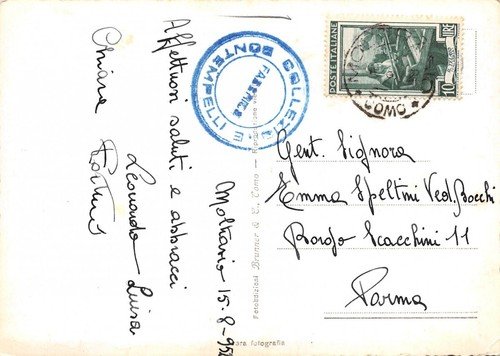 Moltrasio 15-8-95
Affettuosi saluti e abbracci
Leonardo Luisa
Chiara
Gent. Signora
Emma Speltini Ved. Bocchi
Borgo Scacchini 11
Parma
POSTE ITALIANE
LIRE 10
COMO
COLLEZ
BONTEMPELLI E
Fotoedizioni Brunner & C. Como - Riproduzione
Vera fotografia